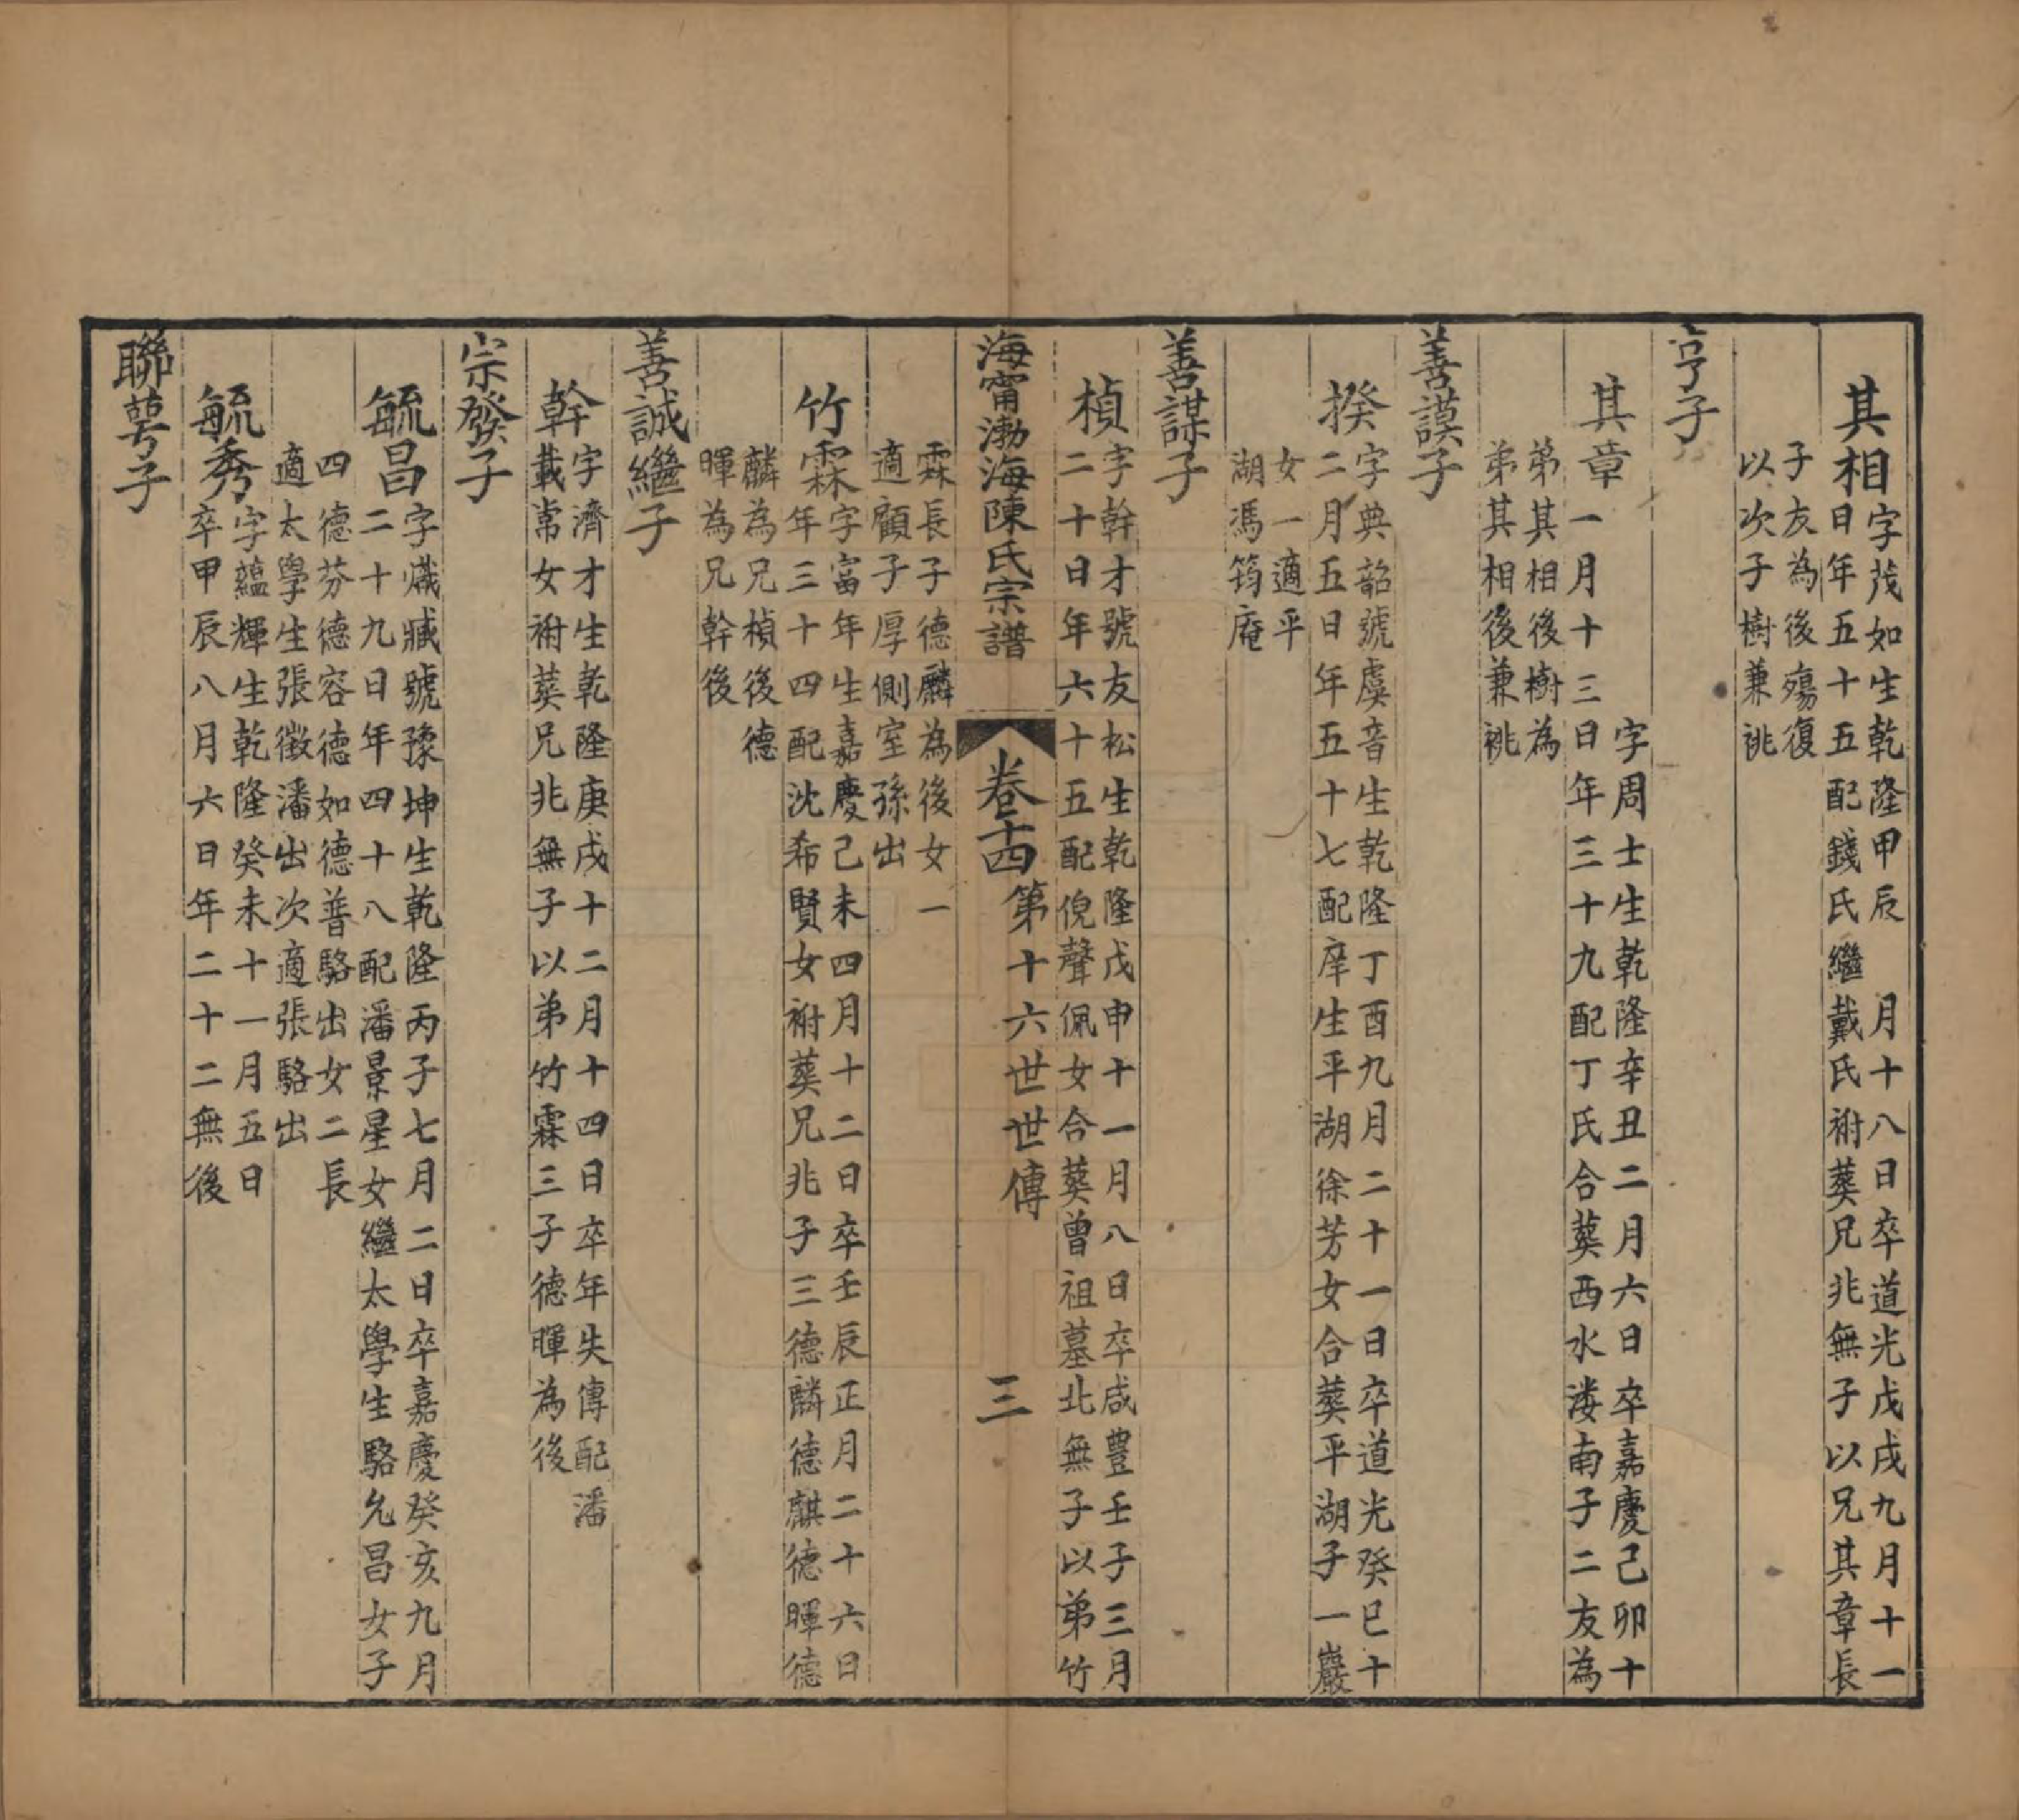 其相
字茂如生乾隆甲辰　月十八日卒道光戊戌九月十一
日年五十五配錢氏繼戴氏祔葬兄兆無子以兄其章長
子友為後殤復
以次子樹兼祧
亨子
其章
字周士生乾隆辛丑二月六日卒嘉慶己卯十
一月十三日年三十九配丁氏合葬西水淒南子二友為
弟其相後樹為
弟其相後兼祧
善謨子
揆
字典韶號虞音生乾隆丁酉九月二十一日卒道光癸巳十
二月五日年五十七配庠生平湖徐芳女合葬平湖子一巖
女一適平
湖馮筠庵
善謀子
楨
字幹才號友松生乾隆戊申十一月八日卒咸豐壬子三月
二十日年六十五配倪聲佩女合葬曾祖墓北無子以弟竹
海甯渤海陳氏宗譜
卷十四
第十六世世傳
三
霖長子德麟為後女一
適顧子厚側室孫出
竹霖
字富年生嘉慶己未四月十二日卒壬辰正月二十六日
年三十四配沈希賢女祔葬兄兆子三德麟德麒德暉德
麟為兄楨後德
暉為兄幹後
善誠繼子
幹
字濟才生乾隆庚戌十二月十四日卒年失傳配潘
載常女祔葬兄兆無子以弟竹霖三子德暉為後
宗發子
毓昌
字熾臧號豫坤生乾隆丙子七月二日卒嘉慶癸亥九月
二十九日年四十八配潘景星女繼太學生駱允昌女子
四德芬德容德如德普駱出女二長
適太學生張徵潘出次適張駱出
毓秀
字蘊輝生乾隆癸未十一月五日
卒甲辰八月六日年二十二無後
聯萼子